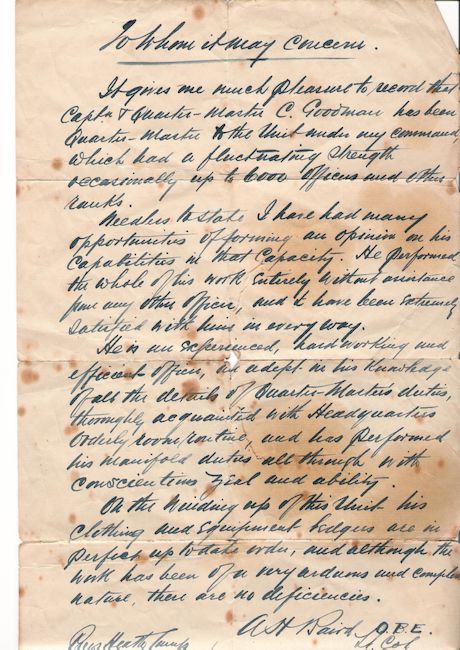 To Whom it may concern.
It gives me much pleasure to record that
Captn & Quarter-Master C. Goodman has been
Quarter-Master to the Unit under my command,
which had a fluctuating strength
occasionally up to 6000 officers and other
ranks.
Needless to state I have had many
opportunities of forming an opinion on his
Capabilities in that Capacity. He performed
the whole of his work entirely without assistance
from any other officer, and I have been extremely
satisfied with him in every way.
He is an experienced, hard working and
efficient officer, an adept in his knowledge
of all the details of Quarter-Masters duties,
thoroughly acquainted with Headquarters
Orderly room routine, and has performed
his manifold duties all through with
conscientious zeal and ability.
On the winding up of this Unit his
clothing and Equipment Ledgers are in
perfect up to date order, and although the
work has been of a very arduous and complex
nature, there are no deficiencies.
A H Baird O.B.E.
Lt Col
Heath Camp